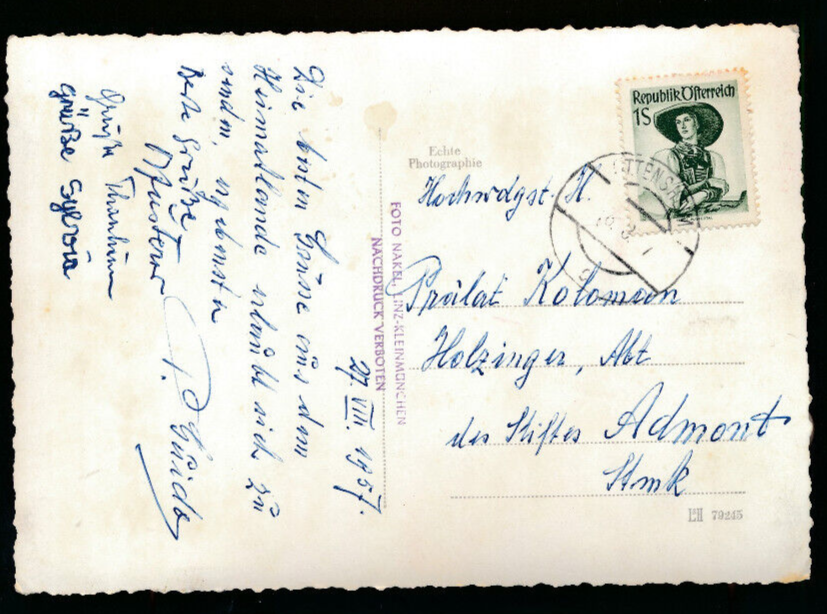 27. VIII. 1957.
Die besten Grüsse aus dem
Heimatlande erlaubt sich zu
senden, ergebenster
P. Guido
Beste Grüße
Grüße
Grüße Sylvia
Echte
Photographie
FOTO NAKEL, LINZ-KLEINMÜNCHEN
NACHDRUCK VERBOTEN
Republik Österreich
1S
Hochwdgst. H.
Prälat Koloman
Holzinger, Abt
des Stiftes Admont
Stmk
79245